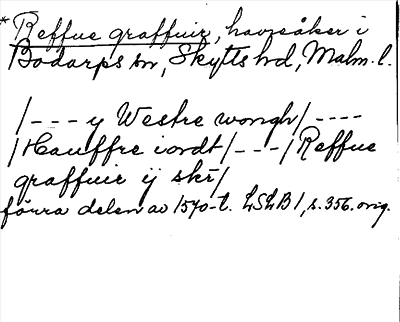 *Reffue graffuir, havreåker i
Bodarps sn, Skytts hd, Malm. l.
/--- y Westre wongh/----
/Hauffre iordt/---/Reffue
graffuir ij skr/
förra delen av 1570-t. LSLB 1, s. 356. orig.